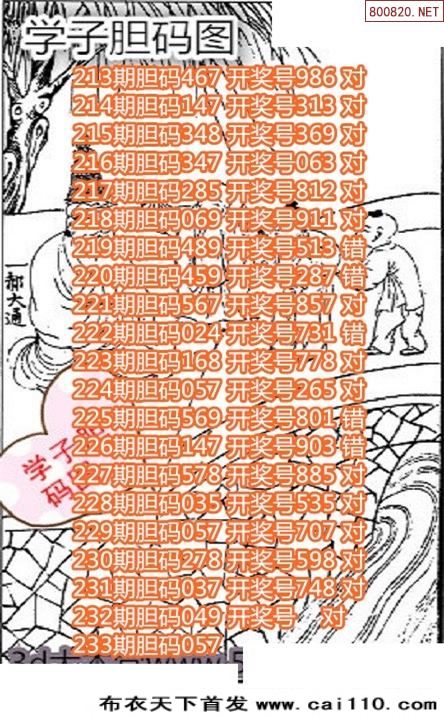 800820.NET
学子胆码图
213期胆码467 开奖号986 对
214期胆码147 开奖号313 对
215期胆码348 开奖号369 对
216期胆码347 开奖号063 对
217期胆码285 开奖号812 对
218期胆码069 开奖号911 对
219期胆码489 开奖号513 错
220期胆码459 开奖号287 错
221期胆码567 开奖号857 对
222期胆码024 开奖号731 错
223期胆码168 开奖号778 对
224期胆码057 开奖号265 对
225期胆码569 开奖号801 错
226期胆码147 开奖号903 错
227期胆码578 开奖号885 对
228期胆码035 开奖号535 对
229期胆码057 开奖号707 对
230期胆码278 开奖号598 对
231期胆码037 开奖号748 对
232期胆码049 开奖号 对
233期胆码057
一郝大通
学子胆
码图
布衣天下首发 www.cai110.com